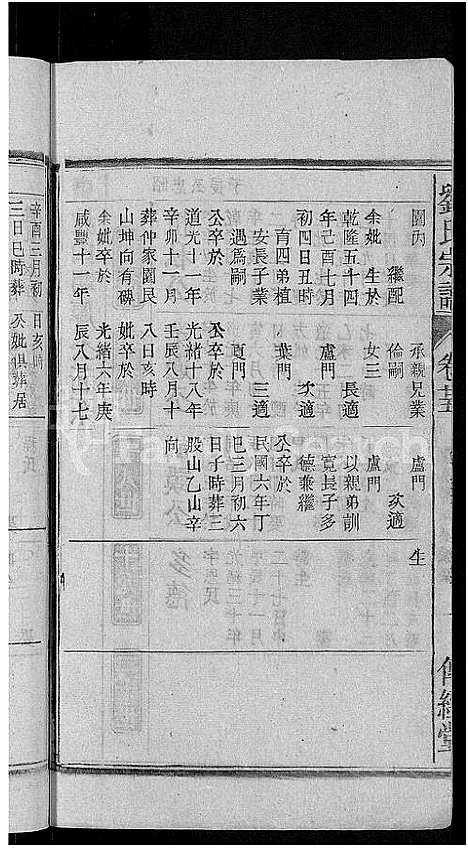 劉氏宗譜
卷十五
傳經堂
園內
繼配
余妣 生於
乾隆五十四
年己酉七月
初四日丑時
育四弟植
安長子業
遇為嗣
公卒於
道光十一年
辛卯十一月
葬仲家園艮
山坤向有碑
余妣卒於
咸豐十一年
承親兄業
倫嗣
女三
長適
盧門
次適
葉門
三適
夏門
公卒於
光緒十八年
壬辰八月十
八日亥時
妣卒於
光緒六年庚
辰八月十七
盧門
次適
盧門
以親弟訓
寬長子多
德兼繼
公卒於
民國六年丁
巳三月初六
日子時葬三
股山乙山辛
向
生
辛酉三月初
三日巳時葬
日亥時
公妣俱葬居